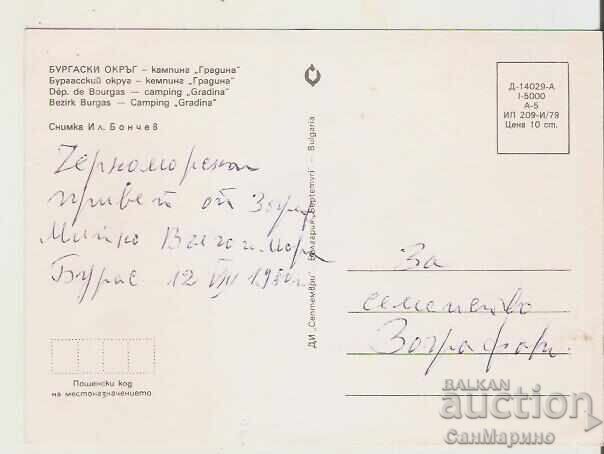 БУРГАСКИ ОКРЪГ – кампинг „Градина“
Бургасский округ – кемпинг „Градина“
Dép. de Bourgas — camping „Gradina“
Bezirk Burgas — Camping „Gradina“
Снимка Ил. Бончев
Черноморски
привет от
Митко
Бургас 12 VIII
Пощенски код
на местоназначението
ДИ „Септември“ България „Septemvri“ – Bulgaria
Д-14029-А
I-5000
А-5
ИП 209-И/79
Цена 10 ст.
За
семейство
Зографови
BALKAN
auction
СанМарино